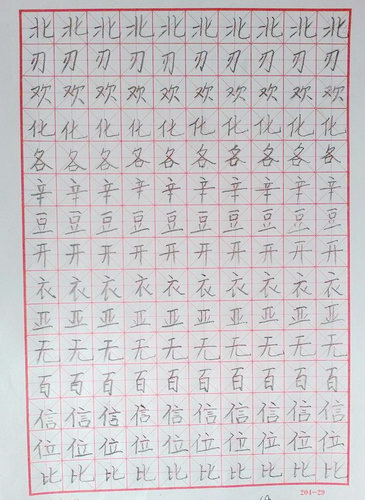 北北北北北北北北北北
刃刃刃刃刃刃刃刃刃刃
欢欢欢欢欢欢欢欢欢欢
化化化化化化化化化化
各各各各各各各各各各
辛辛辛辛辛辛辛辛辛辛
豆豆豆豆豆豆豆豆豆豆
开开开开开开开开开开
衣衣衣衣衣衣衣衣衣衣
亚亚亚亚亚亚亚亚亚亚
无无无无无无无无无无
百百百百百百百百百百
信信信信信信信信信信
位位位位位位位位位位
比比比比比比比比比比
204-29